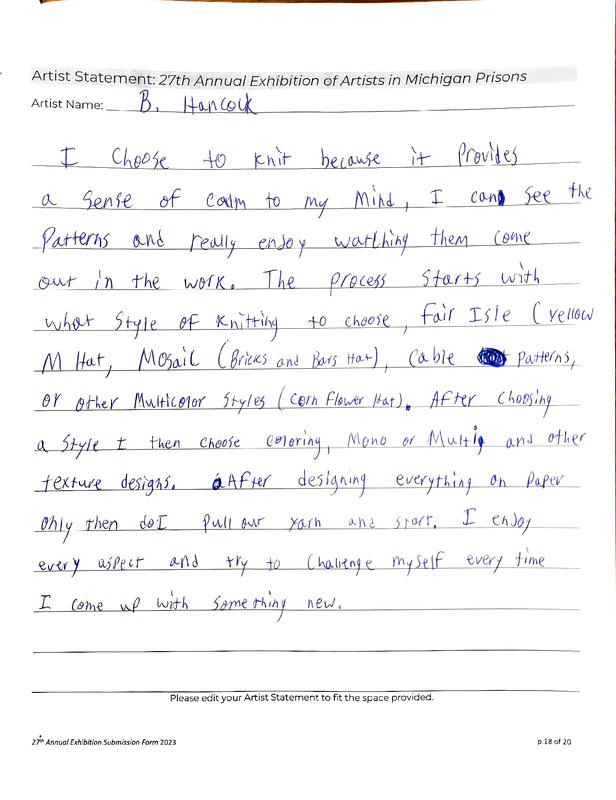 Artist Statement: 27th Annual Exhibition of Artists in Michigan Prisons
Artist Name: B. Hancock
I Choose to knit because it Provides
a Sense of calm to my Mind, I can see the
Patterns and really enjoy watching them come
out in the work. The process starts with
what Style of Knitting to choose, Fair Isle (Yellow
M Hat, Mosaic (Bricks and Bars Hat), Cable Patterns,
or other Multicolor Styles (Corn Flower Hat). After Choosing
a Style I then choose Coloring, Mono or Multi, and other
texture designs. After designing everything on Paper
Only then do I Pull our yarn and start. I enjoy
every aspect and try to Challenge myself every time
I come up with something new.
Please edit your Artist Statement to fit the space provided.
27th Annual Exhibition Submission Form 2023
p.18 of 20